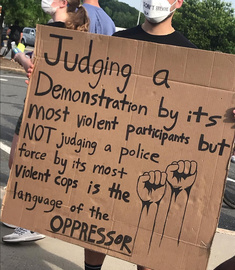 Judging a
Demonstration by its
most violent participants but
NOT judging a police
force by its most
violent cops is the
language of the
OPPRESSOR